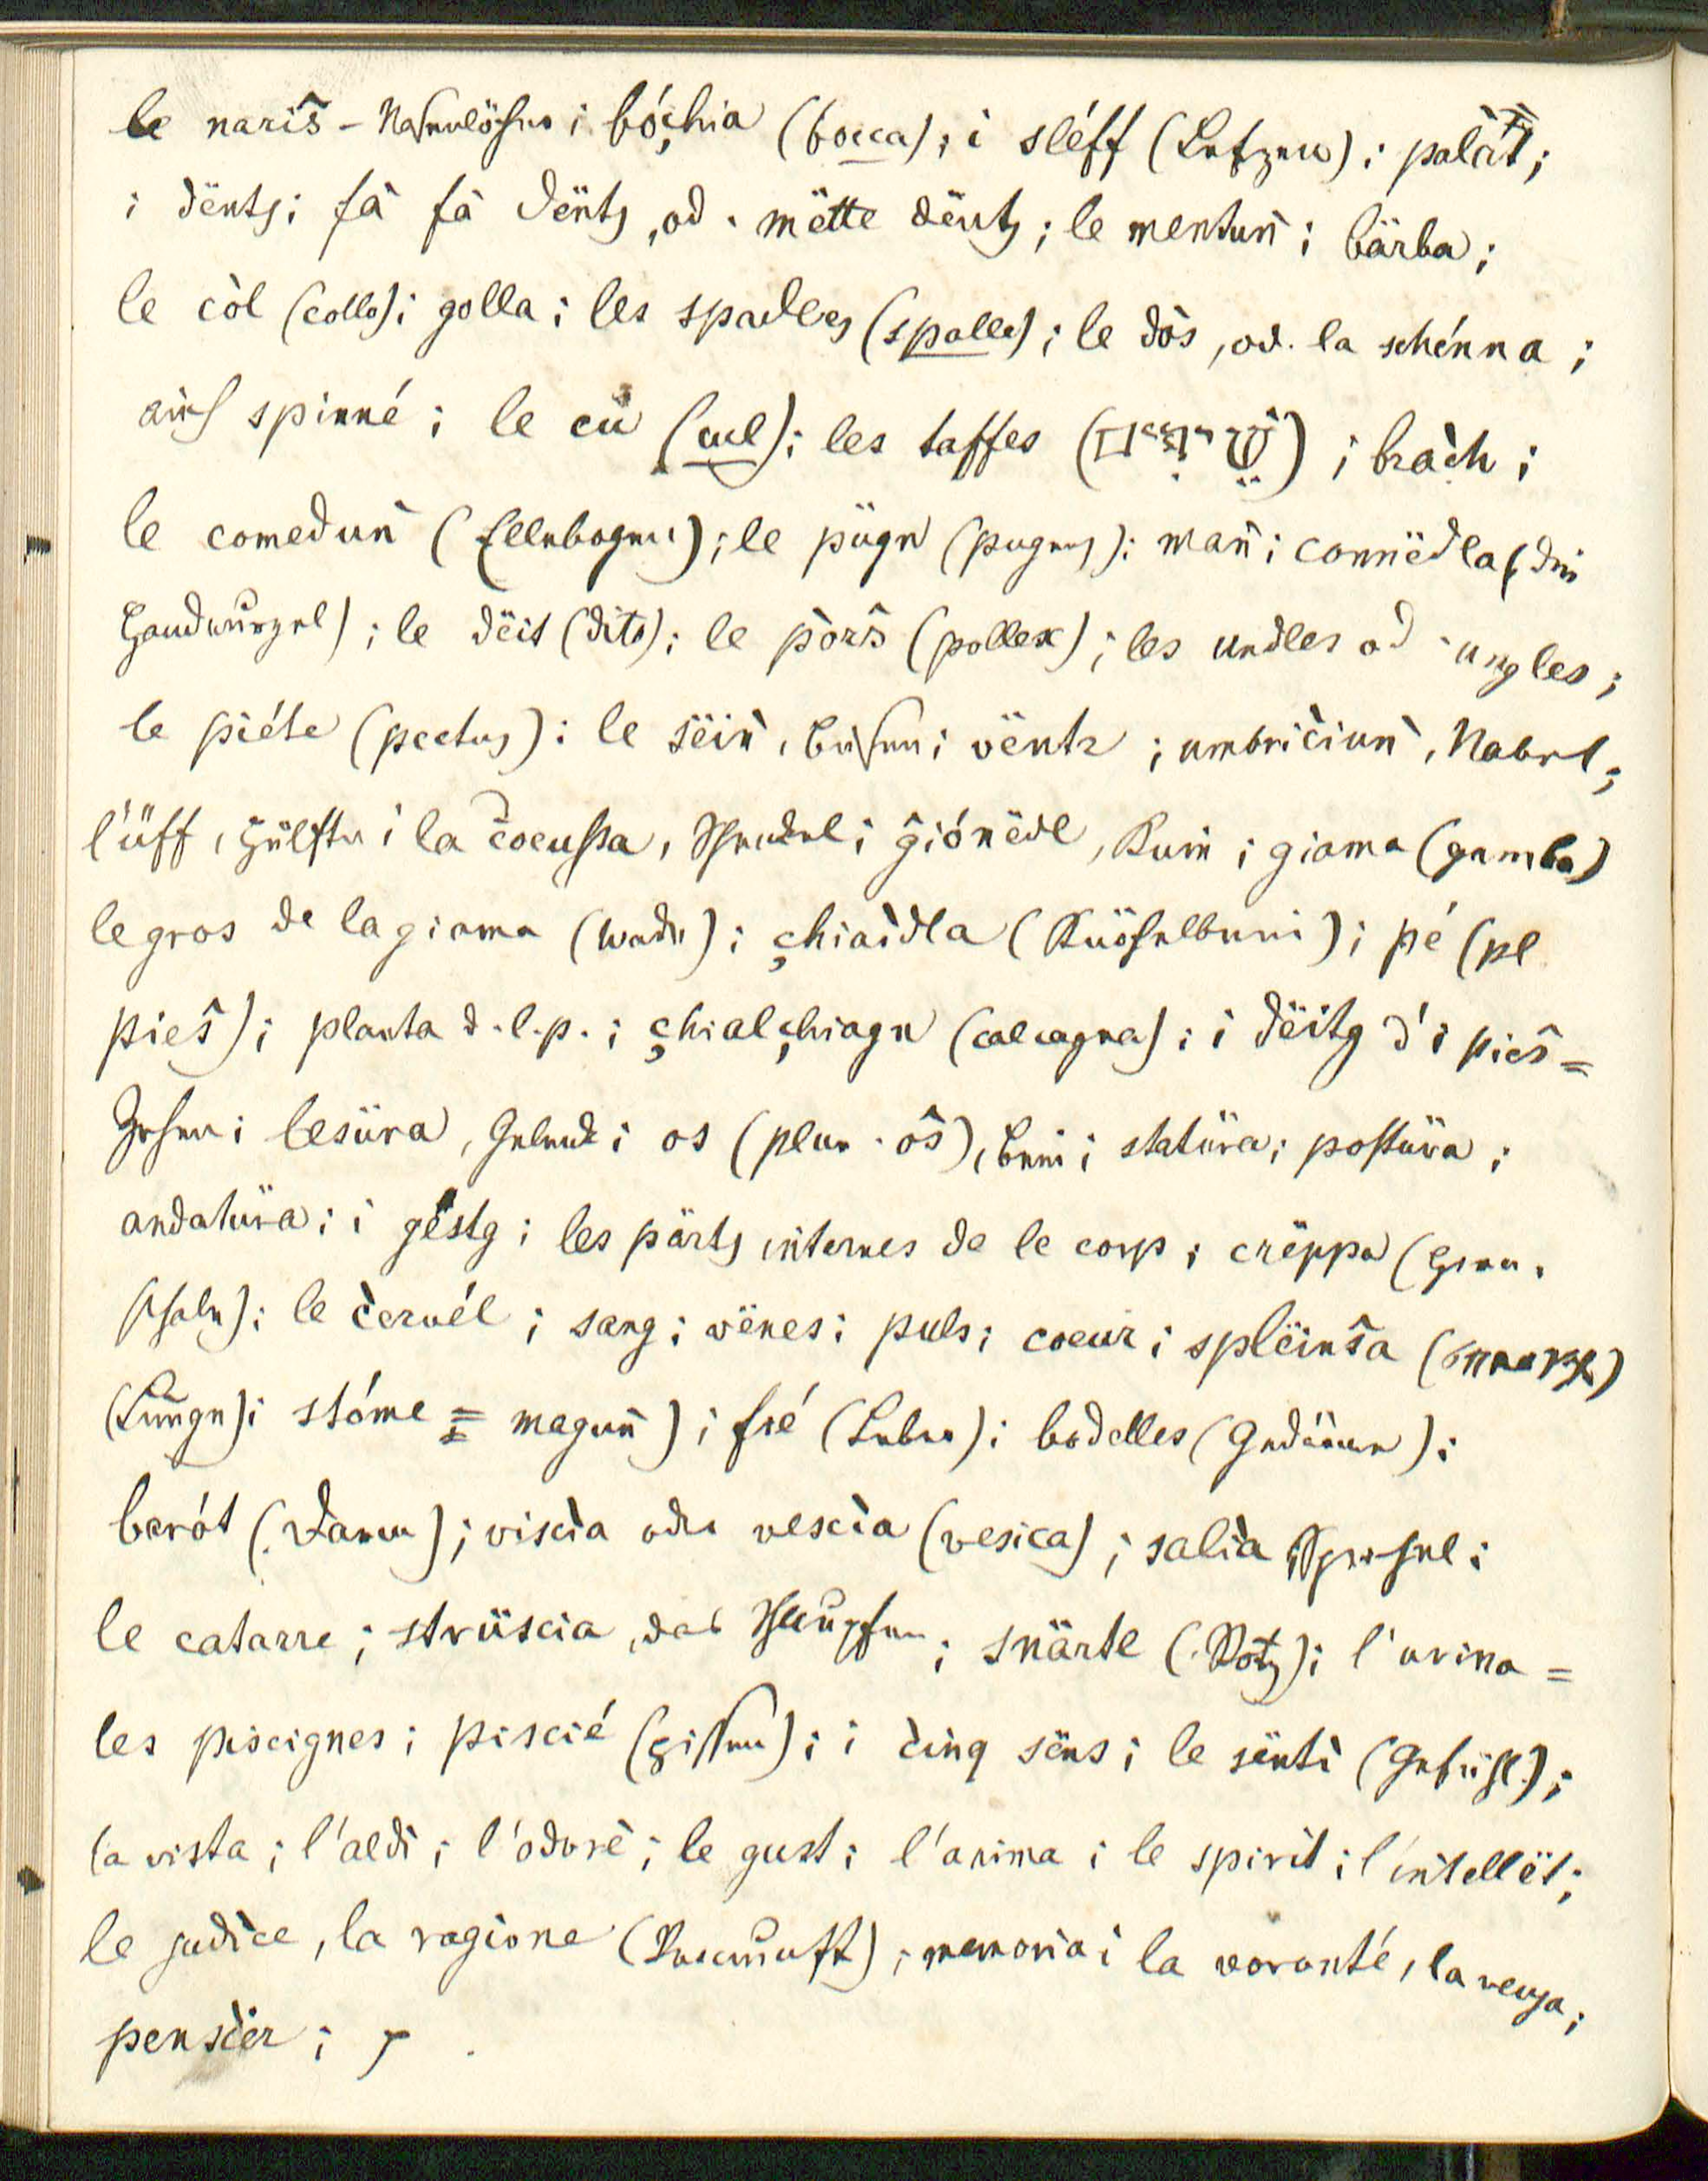 le naris̃ - Nasenlöcher; bóc̨hia (bocca); i sléff (Lefzen); palát;
i dënts; fà fà dënts, od. mëtte dënts; le mentuǹ; bärba;
le còl (collo); golla; les spadles (spalle); le dòs, od. la schénna;
auch spinné; le cü (cul); les taffes; brac̀h;
le comeduǹ (Ellenbogen); le pügn (pugnus); mañ; connëdla (die
Handwurzel); le dëit (dito); le pors̃ (pollex); les undles od. ungles;
le piéte (pectus); le sëiǹ, Busen; vëntr; umbriciuǹ, Nabel;
l'üff, Hüfte; la cocussa, Schenkel; gionëdl, Knie; giama (gamba)
le gros de la giama (Wade); c̨hiaìdla (Knöchelbein); pé (pl
pies̃); planta d. l. p.; c̨hialc̨hiagn (calcagna); i dëitg d'i pies̃ =
Zehen; lesüra, Gelenk; os (plur. os̃), Bein; statüra; postüra;
andatüra; i gëstg; les pärts internes de le corp; crëppa (Hirn-
schale); le c̀ervél; sang; vënes; puls; coeur; splëins̃a
(Lunge); stóme = maguñ); fié (Leber); bodelles (Gedärme);
barót (Darm); viscìa oder vescìa (vesica); salìa, Speichel;
le catarre; strüscia, das Schnupfen; snärte (Rotz); l'urina =
les piscignes; piscié (pissen); i c̀inq sëns; le sëntì (Gefühl);
la vista; l'aldì; l'odorè; le gust; l'anima; le spirit; l'intellët;
le judìce, la ragione (Vernunft); memoria; la voronté, la
penscìer;